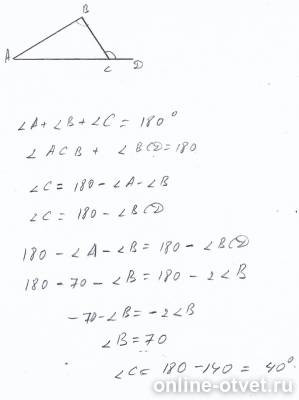 B
A
C
D
∠A + ∠B + ∠C = 180°
∠ACB + ∠BCD = 180
∠C = 180 - ∠A - ∠B
∠C = 180 - ∠BCD
180 - ∠A - ∠B = 180 - ∠BCD
180 - 70 - ∠B = 180 - 2∠B
-70 - ∠B = -2∠B
∠B = 70
∠C = 180 - 140 = 40°
online-otvet.ru